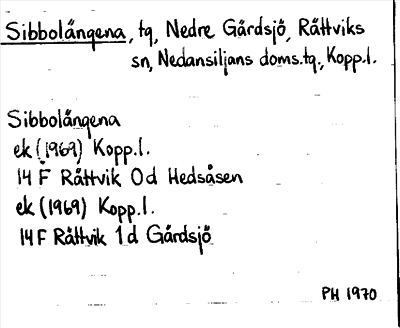 Sibbolångena, tg, Nedre Gårdsjö, Rättviks
sn, Nedansiljans doms.tg., Kopp.l.
Sibbolångena
ek (1969) Kopp.l.
14 F Rättvik 0d Hedsåsen
ek (1969) Kopp.l.
14 F Rättvik 1d Gårdsjö
PH 1970